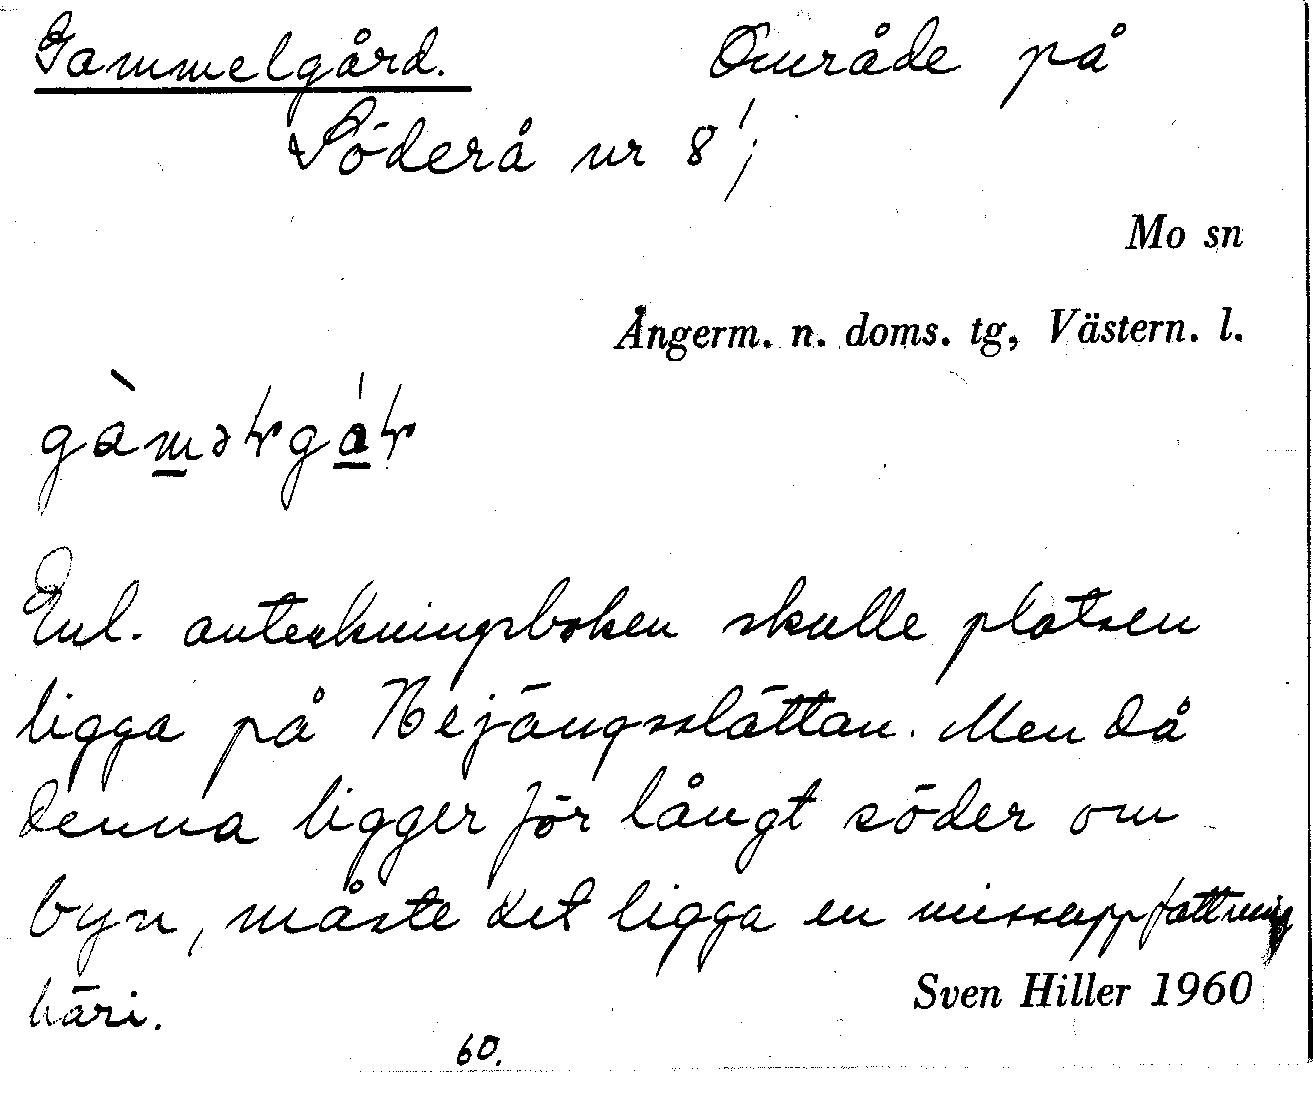 Gammelgård. Område på
Söderå nr 8¹;
Mo sn
Ångerm. n. doms. tg, Västern. l.
Enl. anteckningsboken skulle platsen
ligga på Nejängsslåttan. Men då
denna ligger för långt söder om
byn, måste det ligga en missuppfattning
häri.
Sven Hiller 1960
60.